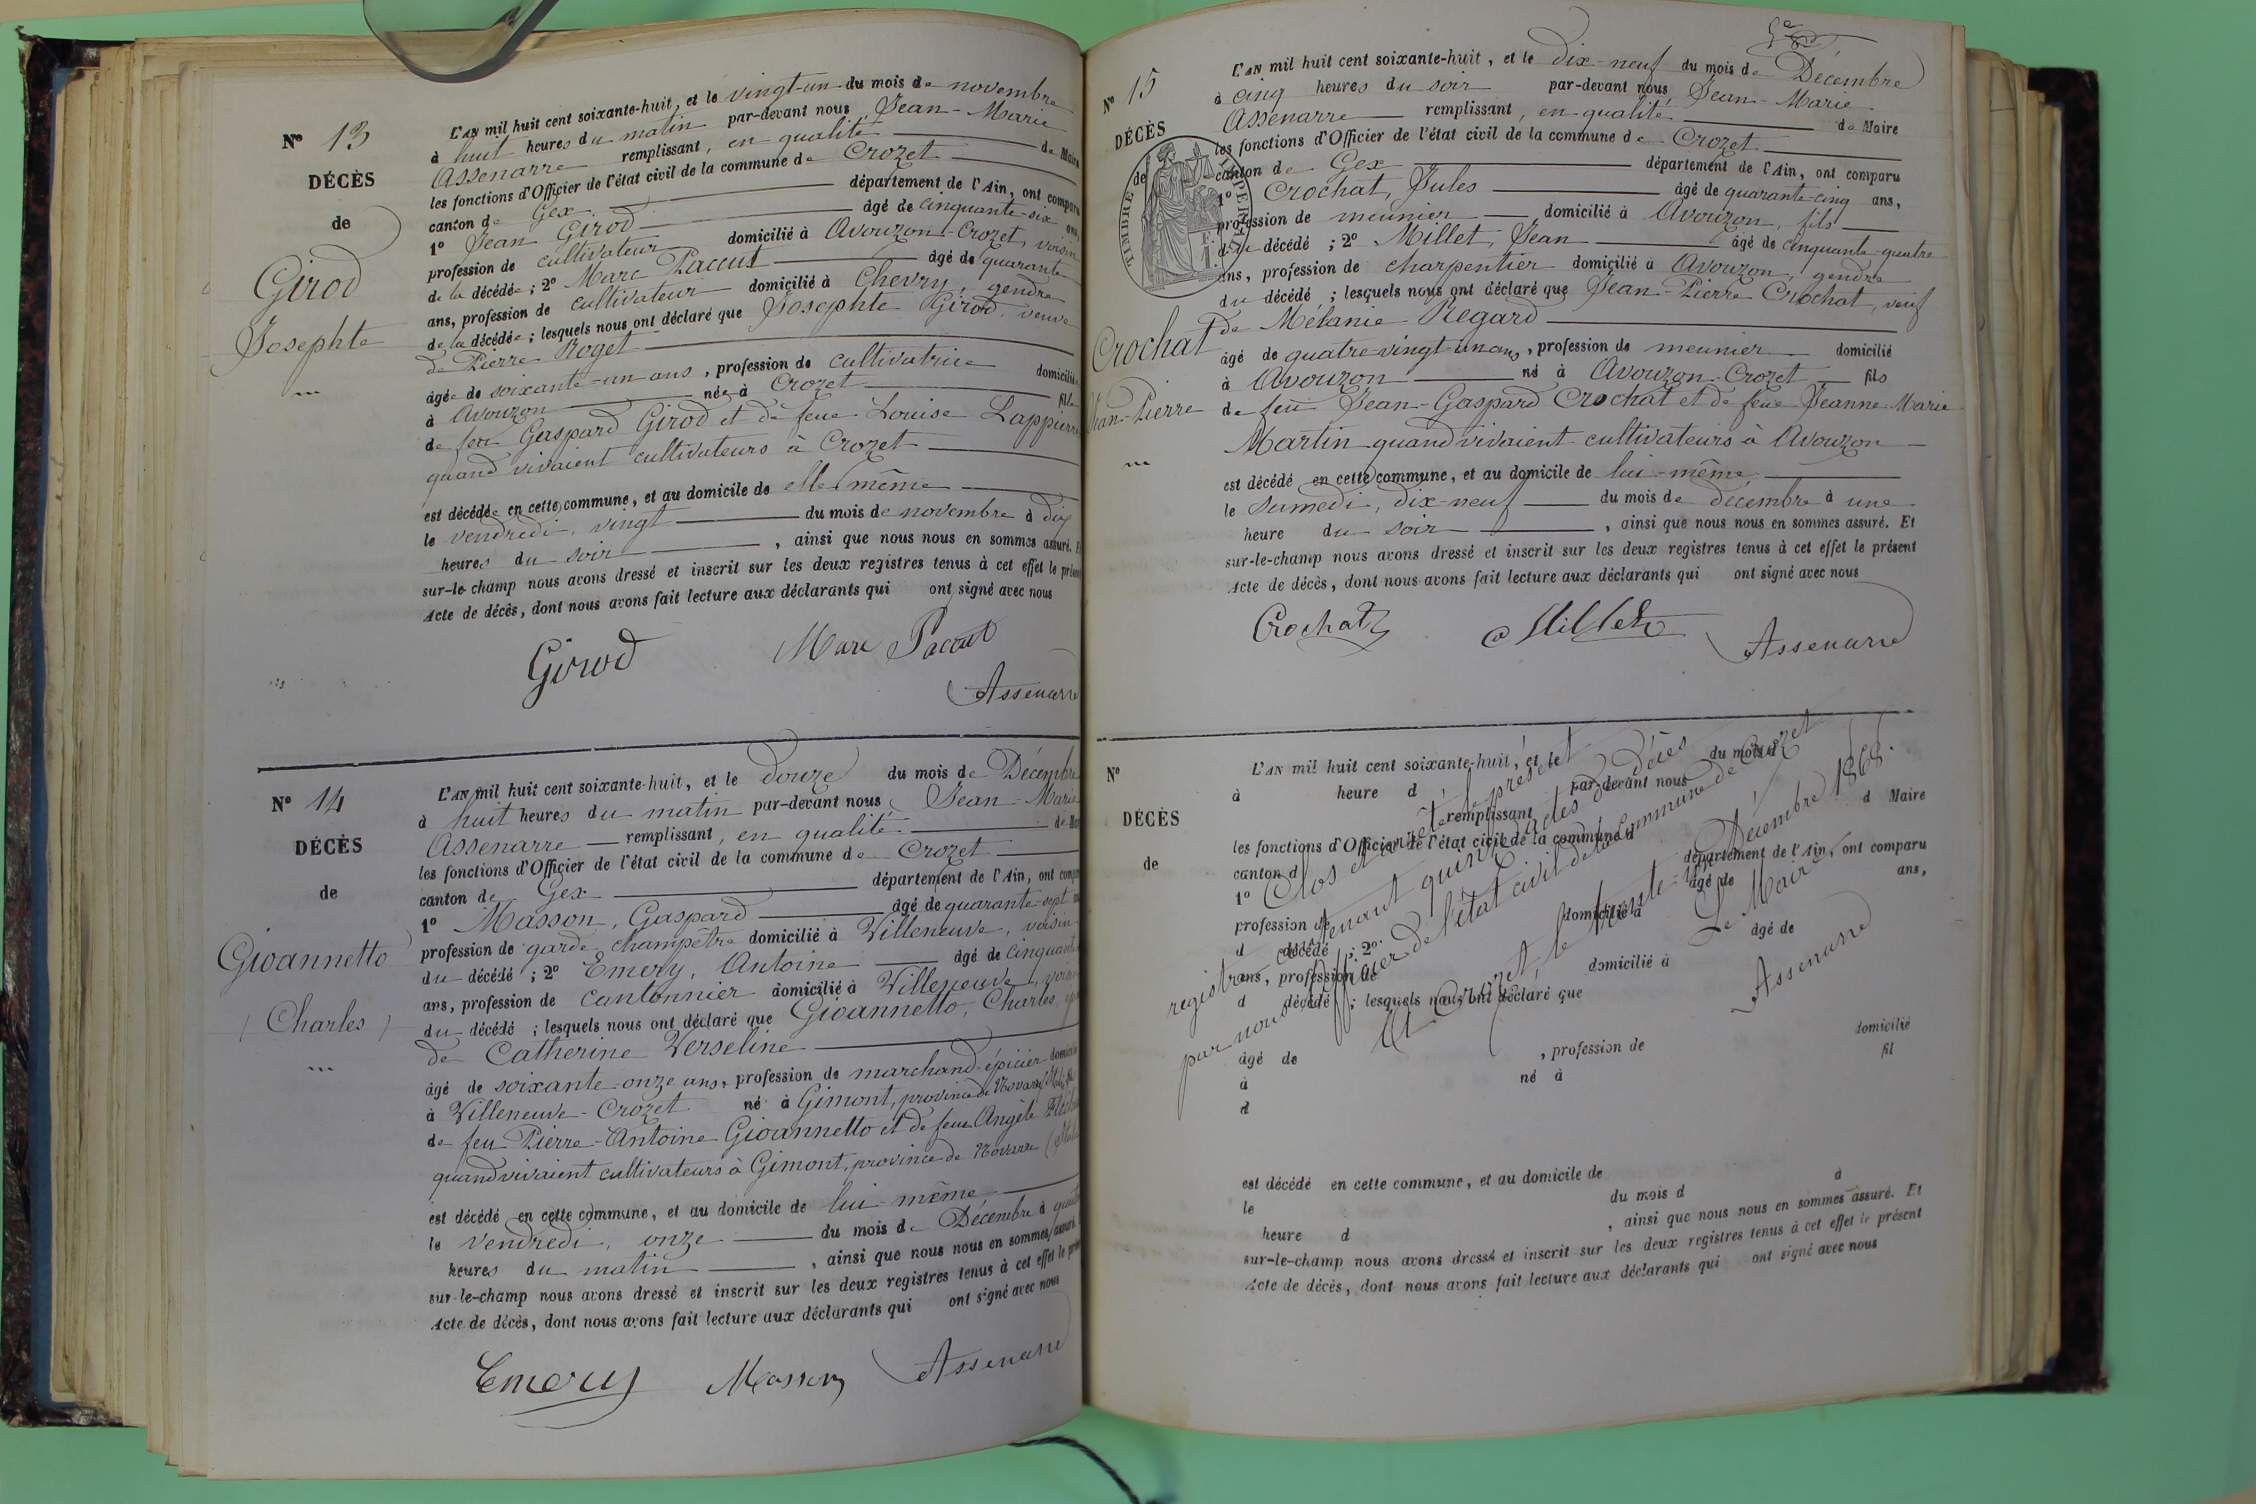 Nº 13
DÉCÈS
de
Girod
Josephte
L'AN mil huit cent soixante-huit, et le vingt-un du mois de novembre
à huit heures du matin par-devant nous Jean-Marie
Assenarre remplissant, en qualité de Maire
les fonctions d'Officier de l'état civil de la commune de Crozet
canton de Gex département de l'Ain, ont comparu
1º Jean Girod âgé de cinquante-six ans,
profession de cultivateur domicilié à Avouzon-Crozet, voisin
de la décédée ; 2º Marc Paccut âgé de quarante
ans, profession de cultivateur domicilié à Chevry, gendre
de la décédée ; lesquels nous ont déclaré que Josephte Girod, veuve
de Pierre Roget
âgée de soixante-un ans, profession de cultivatrice domiciliée
à Avouzon née à Crozet fille
de feu Gaspard Girod et de feue Louise Lappierre
quand vivaient cultivateurs à Crozet
est décédée en cette commune, et au domicile de elle même
le vendredi, vingt du mois de novembre à dix
heures du soir , ainsi que nous nous en sommes assuré. Et
sur-le-champ nous avons dressé et inscrit sur les deux registres tenus à cet effet le présent
Acte de décès, dont nous avons fait lecture aux déclarants qui ont signé avec nous
Girod Marc Paccut
Assenarre
Nº 14
DÉCÈS
de
Gioannetto
Charles
L'AN mil huit cent soixante-huit, et le douze du mois de Décembre
à huit heures du matin par-devant nous Jean-Marie
Assenarre remplissant, en qualité de Maire
les fonctions d'Officier de l'état civil de la commune de Crozet
canton de Gex département de l'Ain, ont comparu
1º Masson, Gaspard âgé de quarante-sept
profession de garde champêtre domicilié à Villeneuve, voisin
du décédé ; 2º Emery, Antoine âgé de cinquante
ans, profession de cantonnier domicilié à Villeneuve, voisin
du décédé ; lesquels nous ont déclaré que Gioannetto, Charles,
de Catherine Verseline
âgé de soixante-onze ans, profession de marchand-épicier domicilié
à Villeneuve-Crozet né à Gimont, province de Novarre
de feu Pierre-Antoine Gioannetto et de feue Angèle
quand vivaient cultivateurs à Gimont, province de Novarre
est décédé en cette commune, et au domicile de lui-même
le vendredi, onze du mois de Décembre à
heures du matin , ainsi que nous nous en sommes assuré.
sur-le-champ nous avons dressé et inscrit sur les deux registres tenus à cet effet le présent
Acte de décès, dont nous avons fait lecture aux déclarants qui ont signé avec nous
Emery Masson Assenarre
Nº 15
DÉCÈS
de
TIMBRE IMPERIAL
Crochat
Jean-Pierre
L'AN mil huit cent soixante-huit, et le dix-neuf du mois de Décembre
à cinq heures du soir par-devant nous Jean-Marie
Assenarre remplissant, en qualité de Maire
les fonctions d'Officier de l'état civil de la commune de Crozet
canton de Gex département de l'Ain, ont comparu
1º Crochat, Jules âgé de quarante-cinq ans,
profession de meunier domicilié à Avouzon, fils
du décédé ; 2º Millet, Jean âgé de cinquante-quatre
ans, profession de charpentier domicilié à Avouzon, gendre
du décédé ; lesquels nous ont déclaré que Jean-Pierre Crochat, veuf
de Mélanie Regard
âgé de quatre-vingt-un ans, profession de meunier domicilié
à Avouzon né à Avouzon-Crozet fils
de feu Jean-Gaspard Crochat et de feue Jeanne-Marie
Martin quand vivaient cultivateurs à Avouzon
est décédé en cette commune, et au domicile de lui-même
le samedi, dix-neuf du mois de décembre à une
heure du soir , ainsi que nous nous en sommes assuré. Et
sur-le-champ nous avons dressé et inscrit sur les deux registres tenus à cet effet le présent
Acte de décès, dont nous avons fait lecture aux déclarants qui ont signé avec nous
Crochat Millet Assenarre
Nº
DÉCÈS
de
L'AN mil huit cent soixante-huit, et le du mois d
à heure d par-devant nous
remplissant d Maire
les fonctions d'Officier de l'état civil de la commune d
canton d département de l'Ain, ont comparu
1º âgé de ans,
profession de domicilié à
d décédé ; 2º âgé de
ans, profession de domicilié à
d décédé ; lesquels nous ont déclaré que
âgé de , profession de domicilié
à né à fil
d
est décédé en cette commune, et au domicile de
le du mois d à
heure d , ainsi que nous nous en sommes assuré. Et
sur-le-champ nous avons dressé et inscrit sur les deux registres tenus à cet effet le présent
Acte de décès, dont nous avons fait lecture aux déclarants qui ont signé avec nous
Clos et arrêté le présent
registre contenant quinze actes de décès
par nous Officier de l'état civil de la commune de Crozet
A Crozet, le trente-un Décembre 1868.
Le Maire
Assenarre